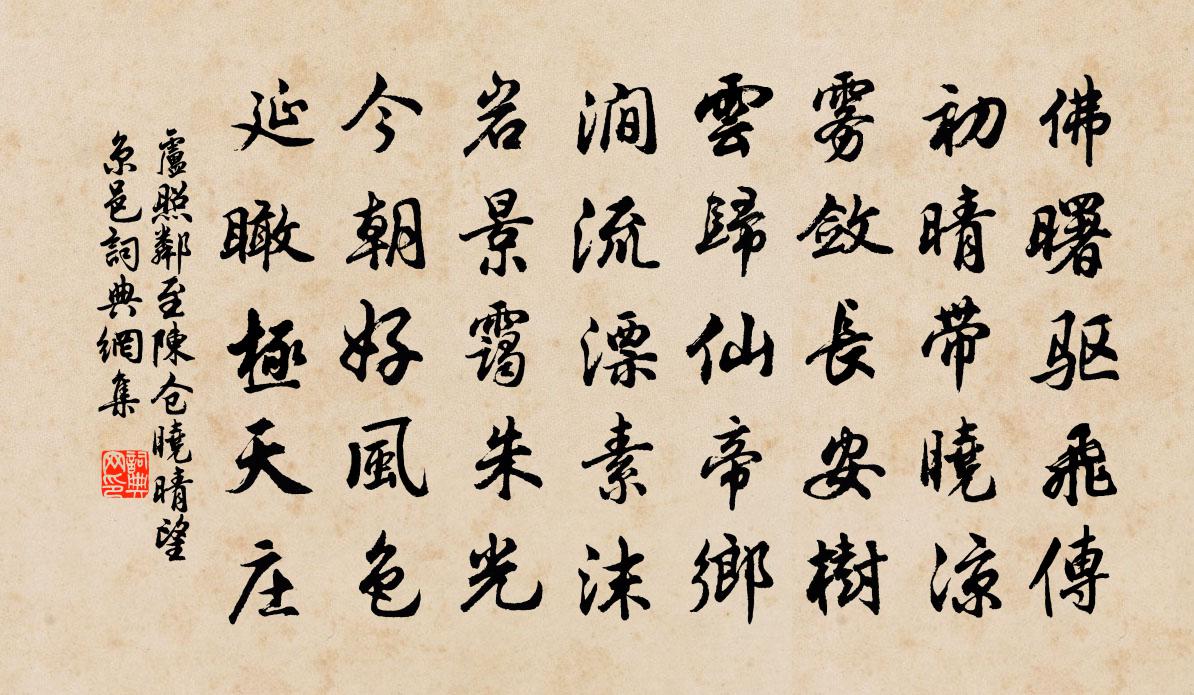 佛曙驱飛傳
初晴带曉涼
雾斂長安樹
雲歸仙帝鄉
澗流漂素沫
岩景靄朱光
今朝好風色
延瞰極天庄
盧照鄰至陳仓曉晴望
京邑詞典網集
詞典
网印